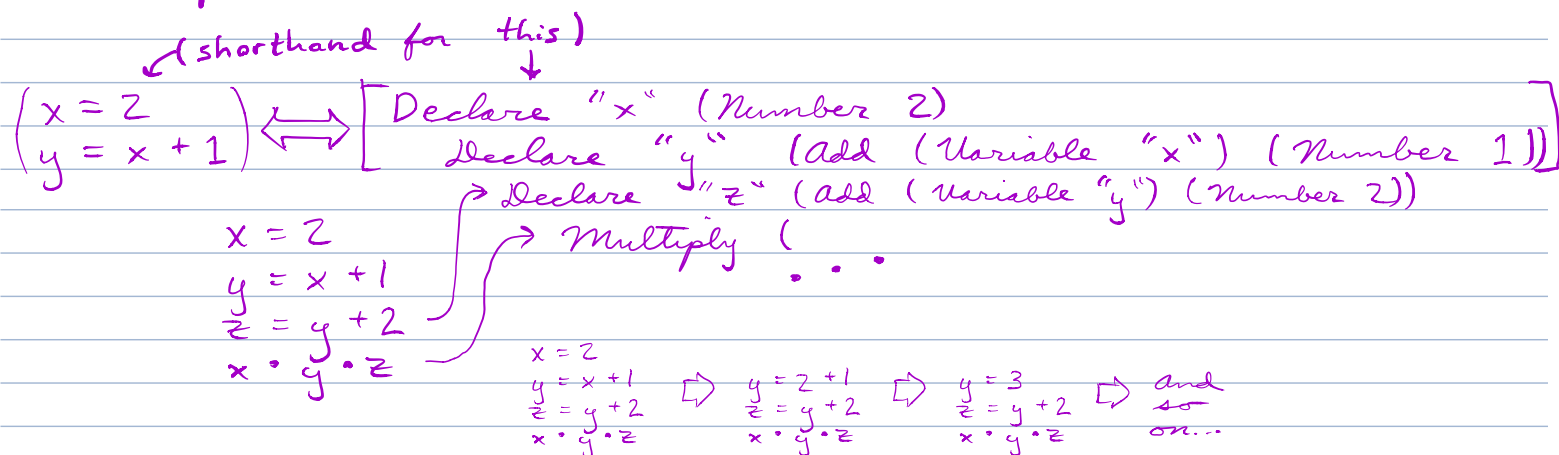 (shorthand for this)
x = 2
y = x + 1
Declare "x" (Number 2)
Declare "y" (Add (Variable "x") (Number 1))
Declare "z" (Add (Variable "y") (Number 2))
Multiply (
. . .
x = 2
y = x + 1
z = y + 2
x · y · z
x = 2
y = x + 1
z = y + 2
x · y · z
⇨
y = 2 + 1
z = y + 2
x · y · z
⇨
y = 3
z = y + 2
x · y · z
⇨
and
so
on...